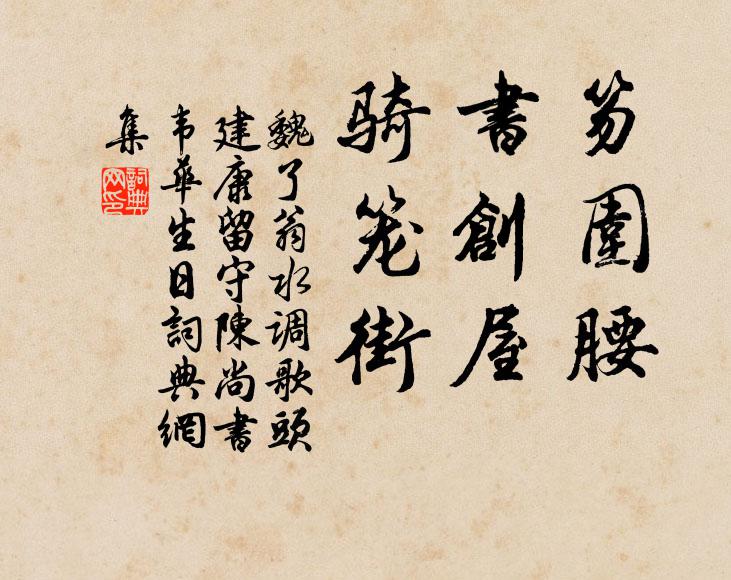 笏圍腰
書創屋
骑笼街
魏了翁水调歌頭
建康留守陳尚書
韦華生日詞典網
集
詞典
网印